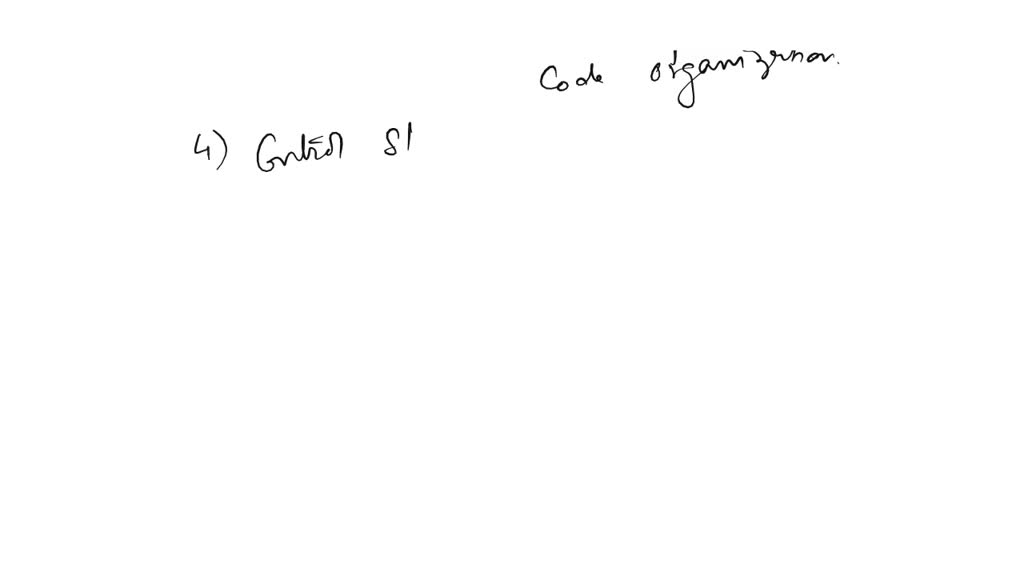 Code organization.
4) Control St